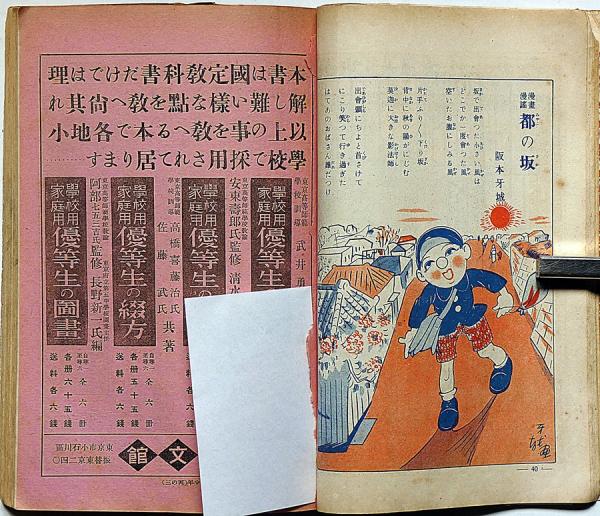 漫畫漫謠
都の坂
阪本牙城
坂で出會つた小さい風は
どこでか一度會つた風
空いたお腹にしみる風
片手ふり〱下り坂
背中に秋の陽がにじむ
莫迦に大きな影法師
出會頭にちよと首さげて
にこり笑つて行き過ぎた
はてあのおばさん誰だつけ
— 40 —
本書は國定教科書だけでは理
解し難い樣な點を教へ尚其れ
以上の事を教へる本で各地小
學校で採用されて居ります……
東京高等師範學校訓導 武井勇
學校用家庭用 優等生の
安東壽郎氏監修 清水
學校用家庭用 優等生の
東京高等師範學校訓導 高橋喜藤治氏
佐藤武氏 共著
學校用家庭用 優等生の綴方
阿部七五三吉氏監修 長野新一氏編
學校用家庭用 優等生の圖畫
全六冊
各册六十五錢
送料各六錢
全六冊
各册五十五錢
送料各六錢
文館
東京市小石川區
振替東京二四〇